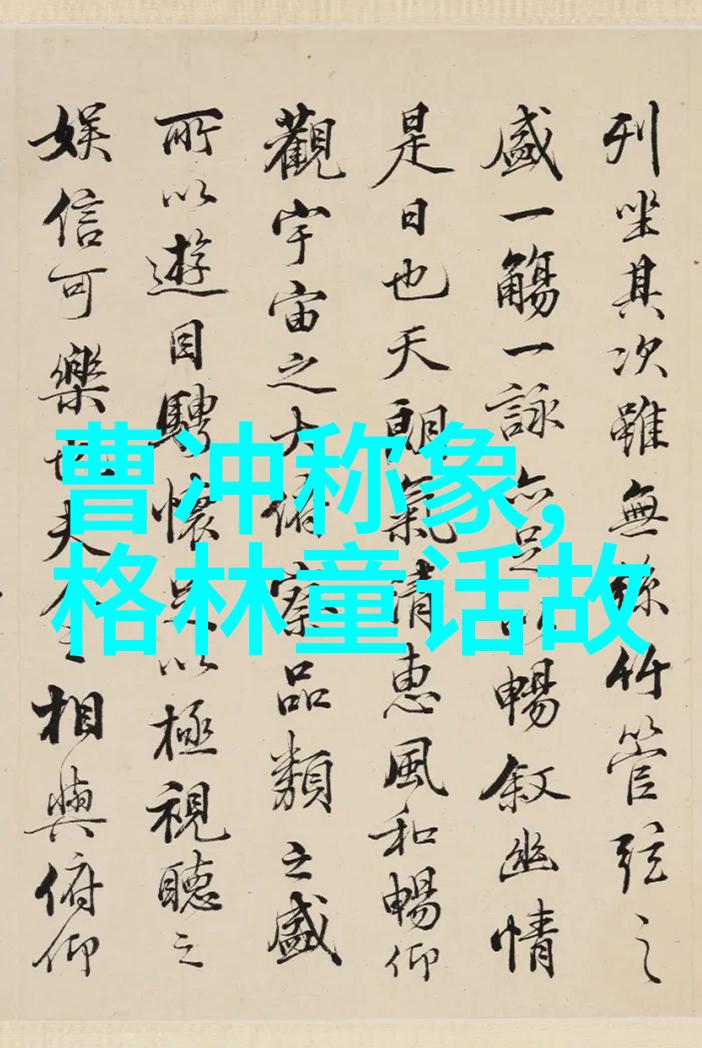 曹冲称象,
格林童话故
列坐其次雖無絲竹管弦之
盛一觴一詠亦足以暢叙幽情
是日也天朗氣清惠風和暢仰
觀宇宙之大俯察品類之盛
所以遊目騁懷足以極視聽之
娱信可樂也夫人之相與俯仰